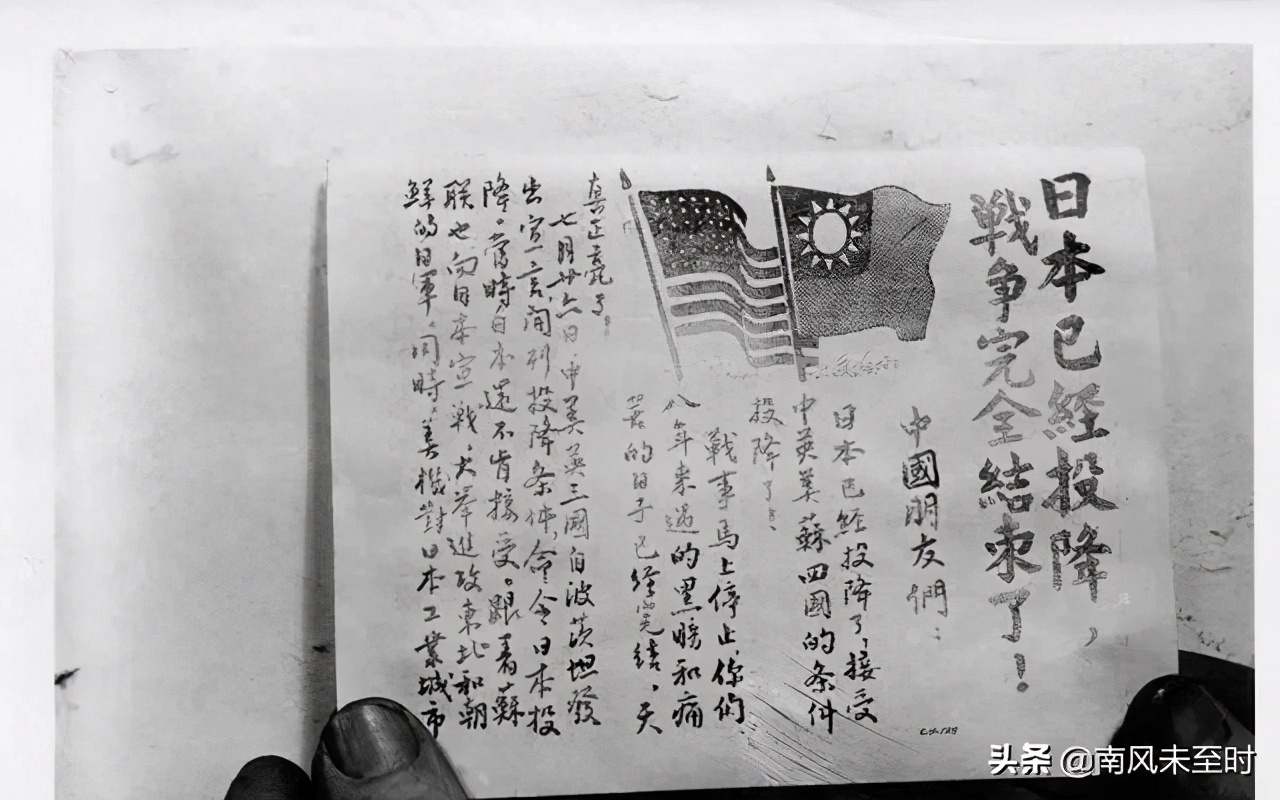 日本已经投降，
戦争完全結束了！
中國朋友們：
日本已経投降了，接受
中英美蘇四國的条件
投降了。
戰事馬上停止，你們
八年来過的黑暗和痛
苦的日子已経完結，天
真正亮了。
七月廿六日，中美英三國自波茨坦發
出宣言，開列投降条件，命令日本投
降。當時日本還不肯接受。跟着蘇
联也向日本宣戰，大举進攻東北和朝
鮮的日軍，同時，美機對日本工業城市
头条 @南风未至时